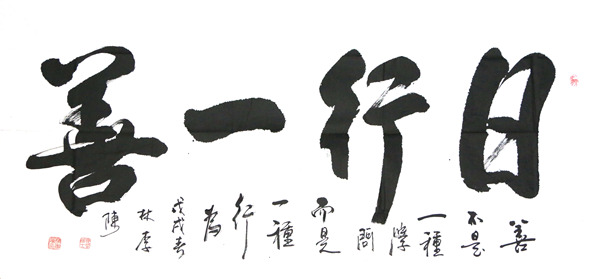 日行一善
善不是一種學問而是一種行為
戊戌春